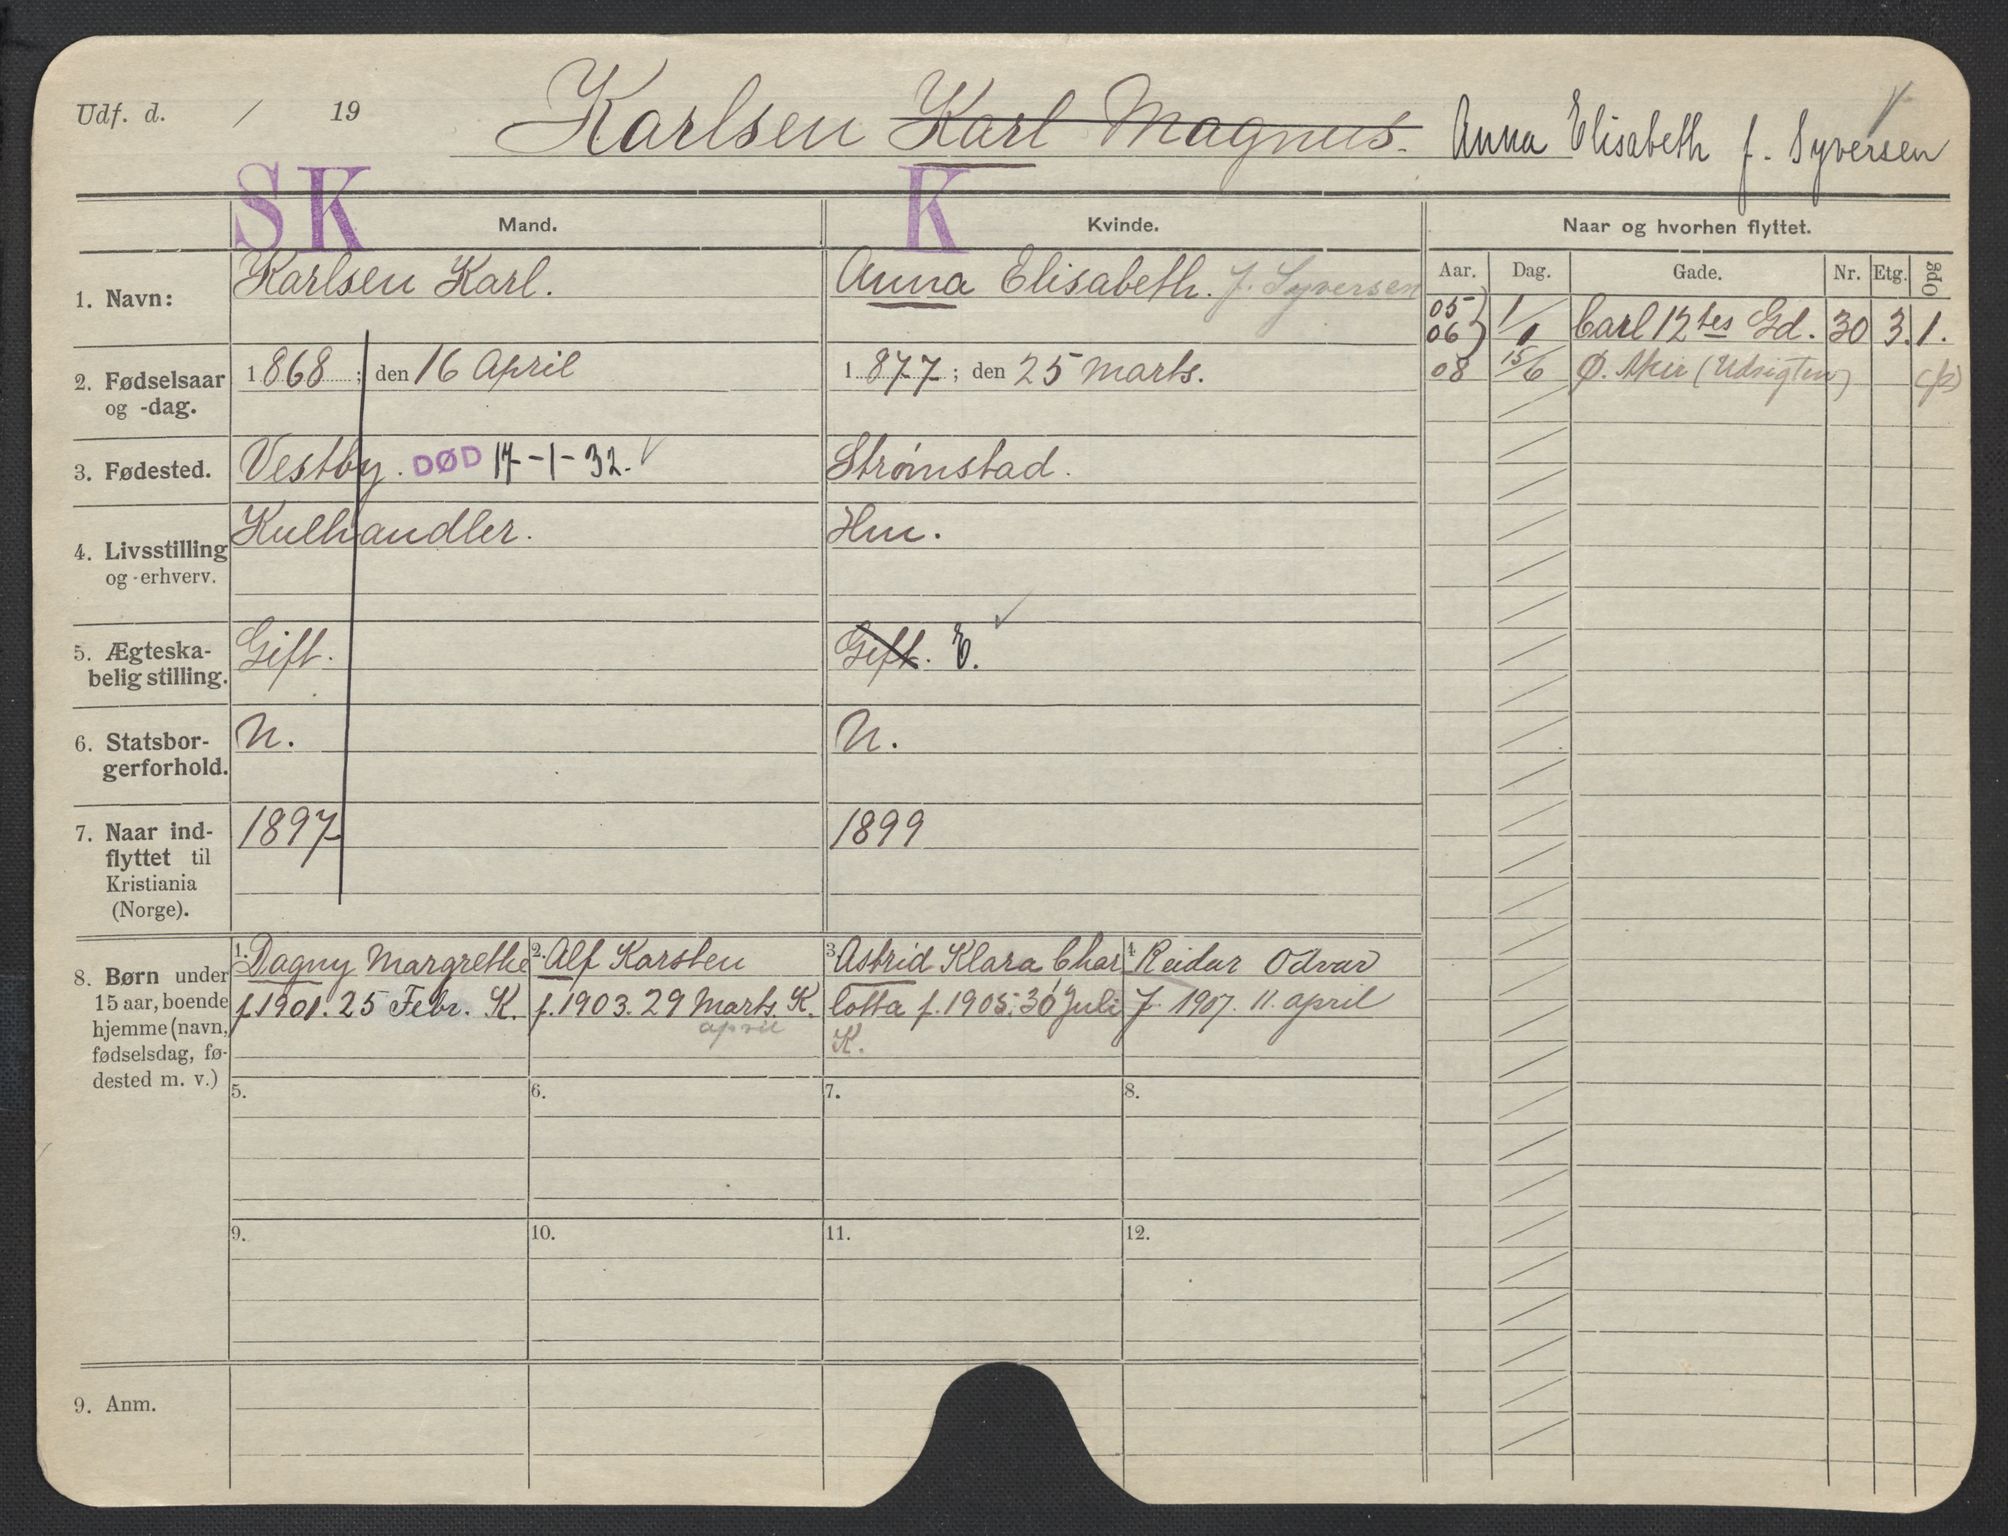 Udf. d. / 19
Karlsen Karl Magnus. Anna Elisabeth f. Syversen
SK Mand. K Kvinde. Naar og hvorhen flyttet.
Aar. Dag. Gade. Nr. Etg. Opg
1. Navn: Karlsen Karl. Anna Elisabeth. f. Syversen
05) 1/
06) 1 Carl 12tes Gd. 30 3. 1.
2. Fødselsaar 1868; den 16 April 1877; den 25 Marts.
og -dag.
08 15/6 Ø. Aker (Udsigten)
3. Fødested. Vestby. DØD 17-1-32. Strømstad.
4. Livsstilling Kulhandler. Hm.
og -erhverv.
5. Ægteska- Gift. Gift. E.
belig stilling.
6. Statsbor- N. N.
gerforhold.
7. Naar ind- 1897 1899
flyttet til
Kristiania
(Norge).
8. Børn under
15 aar, boende
hjemme (navn,
fødselsdag, fø-
dested m. v.)
1. Dagny Margrethe
f. 1901. 25 Febr. K.
2. Alf Karsten
f. 1903. 29 Marts. K.
april
3. Astrid Klara Char
lotta f. 1905. 30 Juli
K.
4. Reidar Odvar
f. 1907. 11. april
5. 6. 7. 8.
9. 10. 11. 12.
9. Anm.